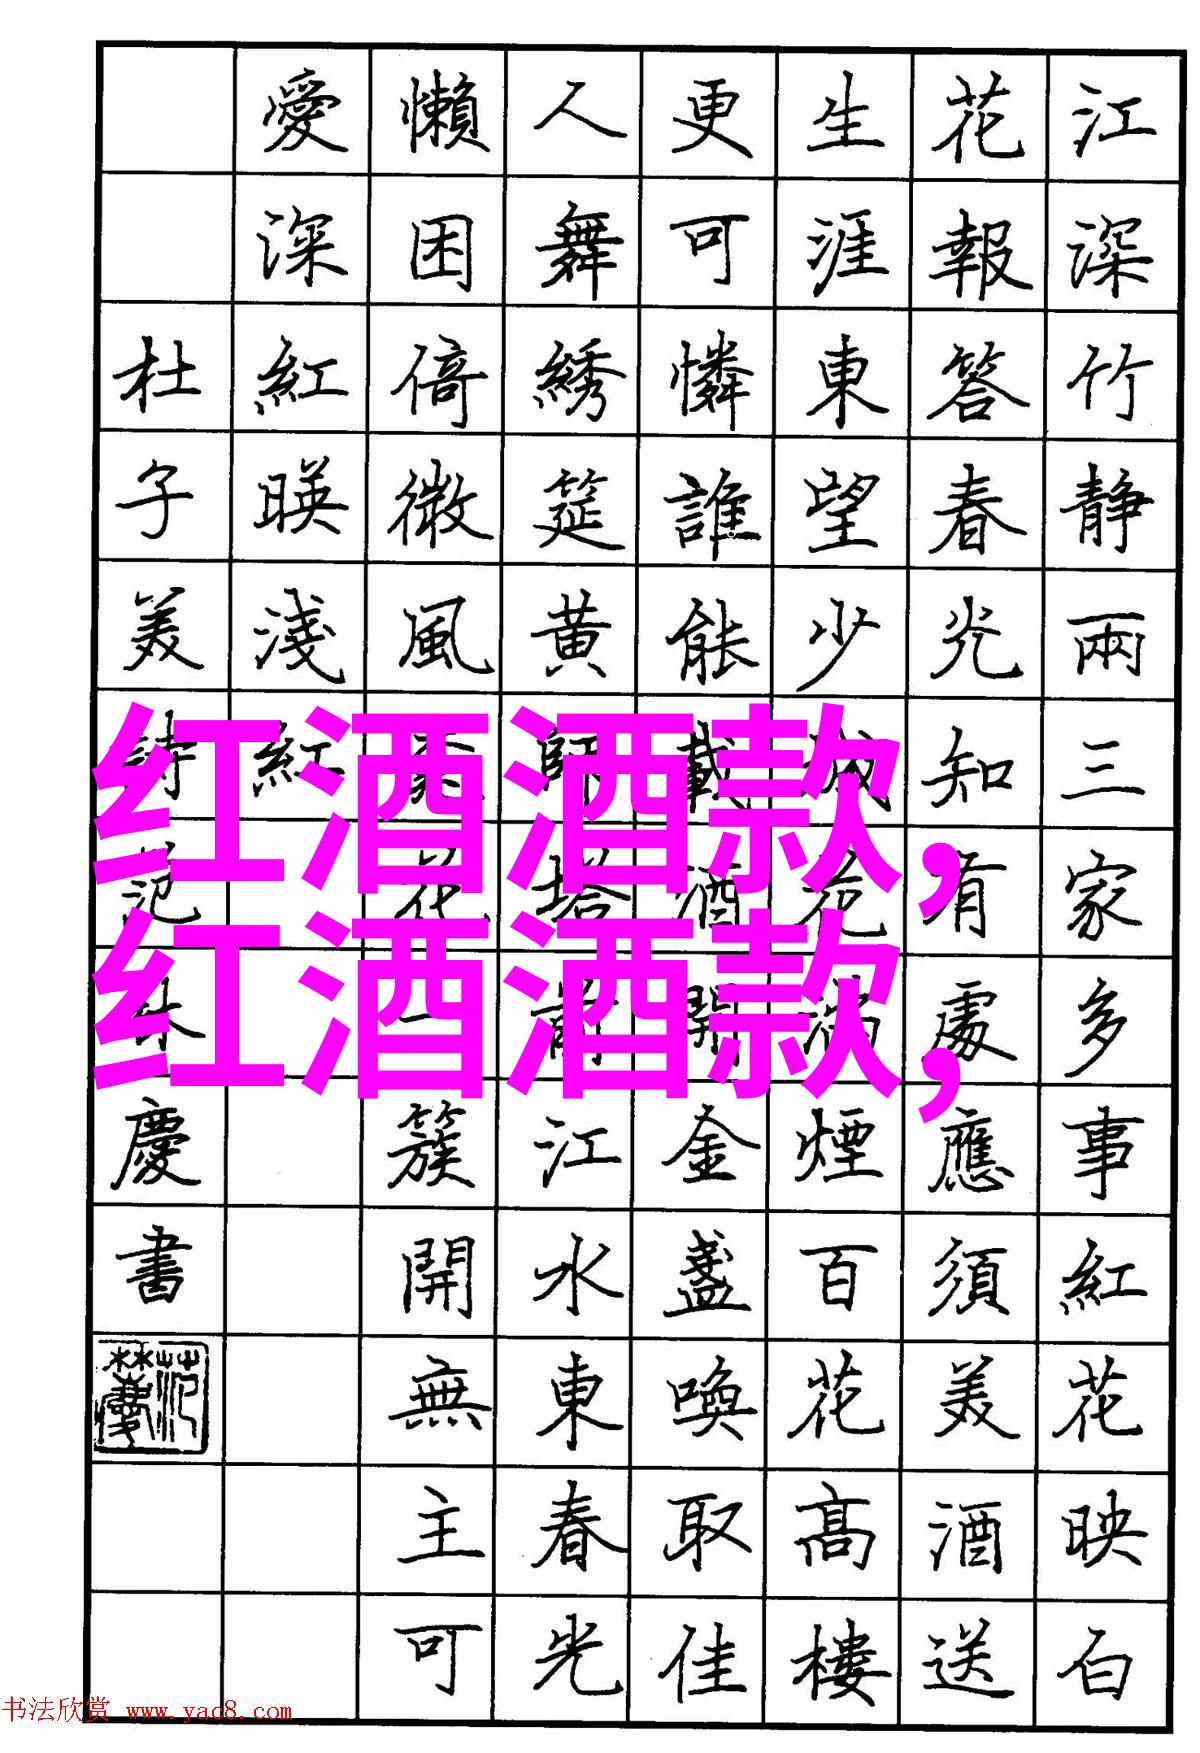 江深竹静兩三家多事紅花映白
花報答春光知有處應須美酒送
生涯東望少城花滿煙百花髙樓
更可憐誰能載酒開金盞喚取佳
人舞綉筵黄師塔前江水東春光
懶困倚微風桃花一簇開無主可
愛深紅暎淺紅
杜子美詩范林慶書
红酒酒款,
红酒酒款,
书法欣赏 www.yac8.com